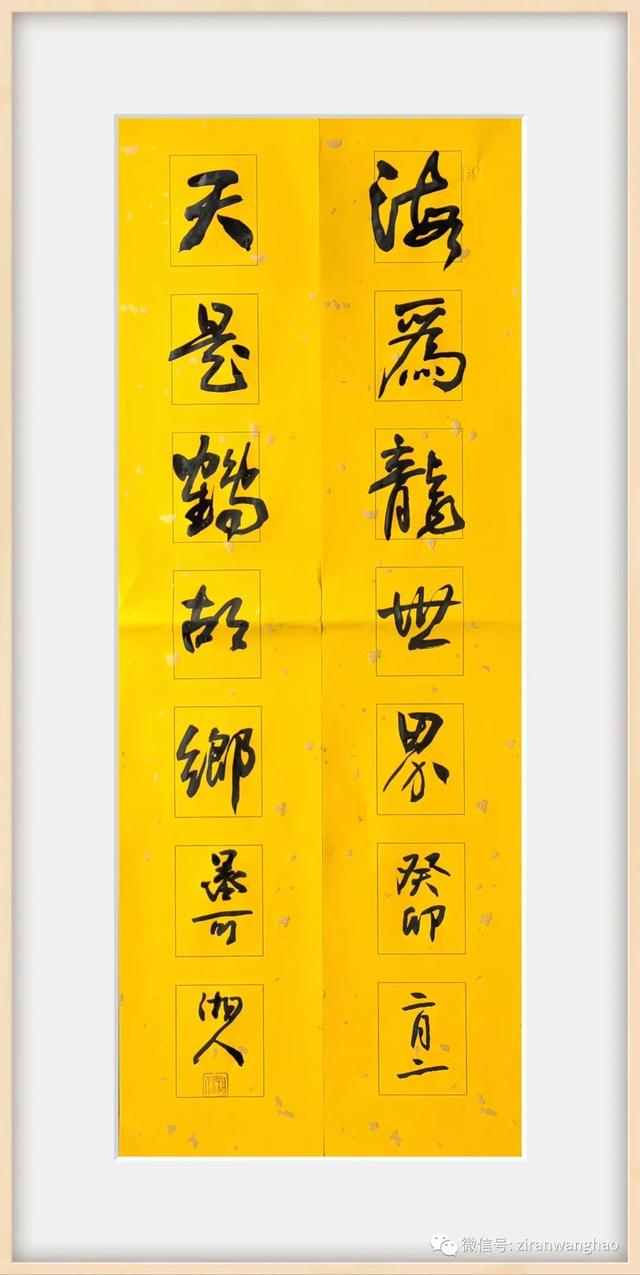 海為龍世界癸卯二月二
天是鶴故鄉墨可湘人
微信号: ziranwanghao